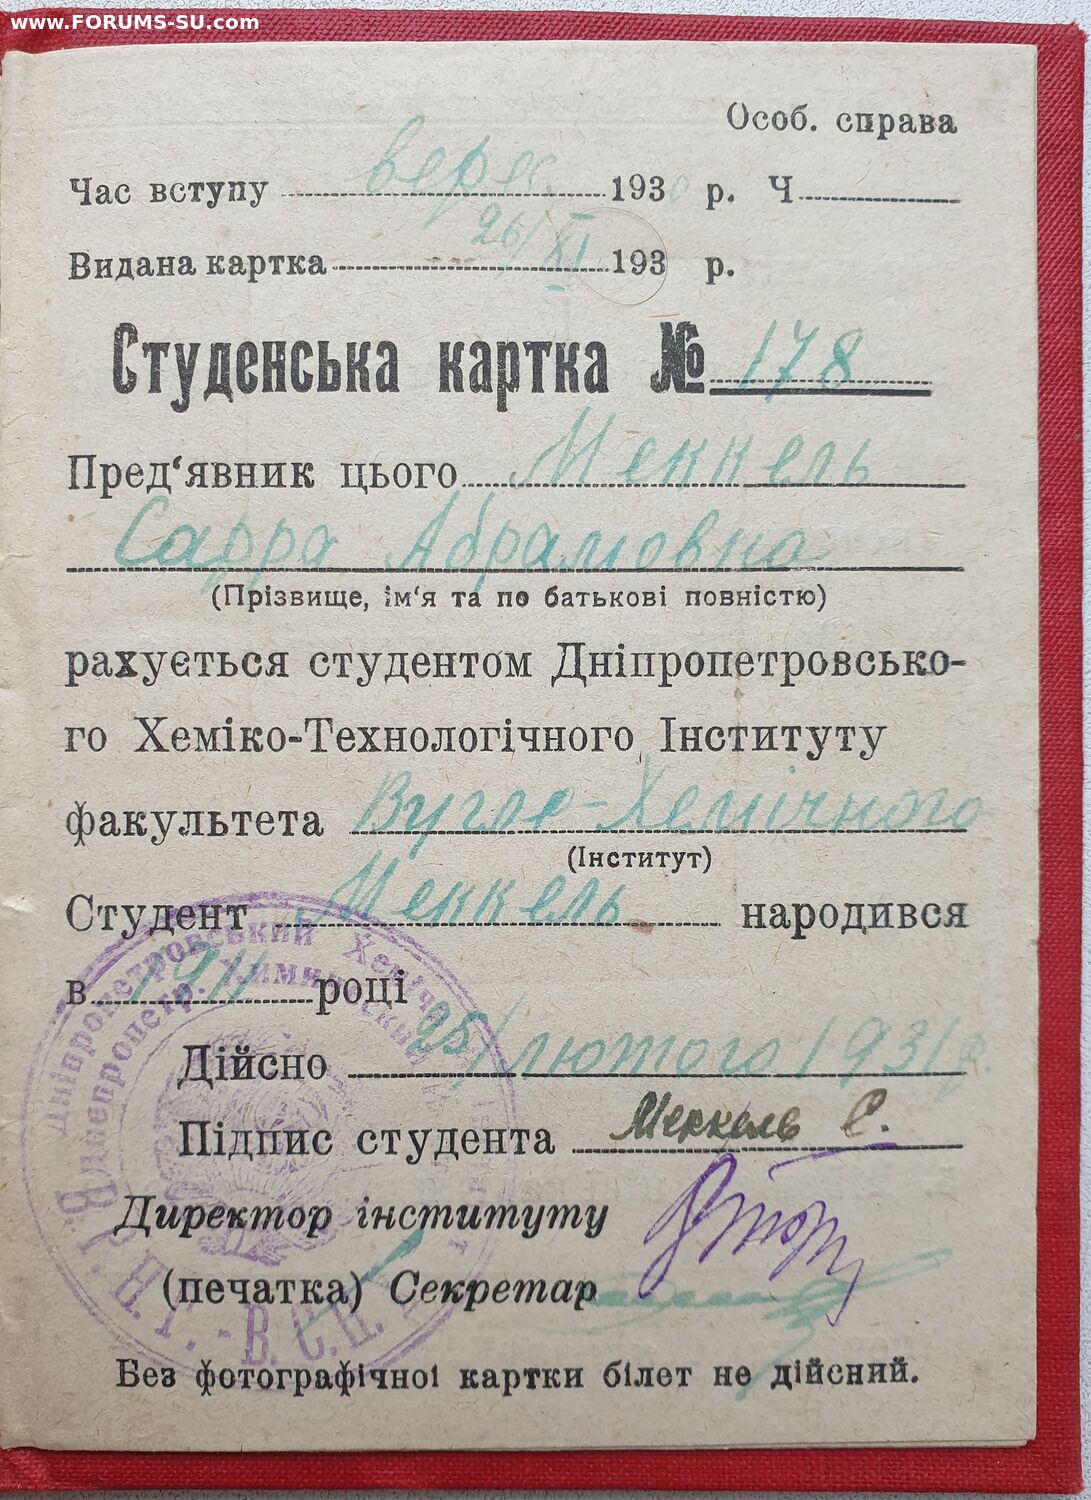 www.FORUMS-SU.com
Особ. справа
Час вступу верес. 1930 р. Ч
Видана картка 26/XI 193 р.
Студенська картка № 178
Пред‘явник цього Меккель
Сарра Абрамовна
(Прізвище, ім‘я та по батькові повністю)
рахується студентом Дніпропетровсько-
го Хеміко-Технологічного Інституту
факультета Вугле-Хемічного
(Інститут)
Студент Меккель народився
в 1911 році
Дійсно 25/лютого 1931 р.
Підпис студента Меккель С.
Директор інституту
(печатка) Секретар
Без фотографічної картки білет не дійсний.
Дніпропетровський Хемічн
Днепропетр. Химический
В.С.Н.